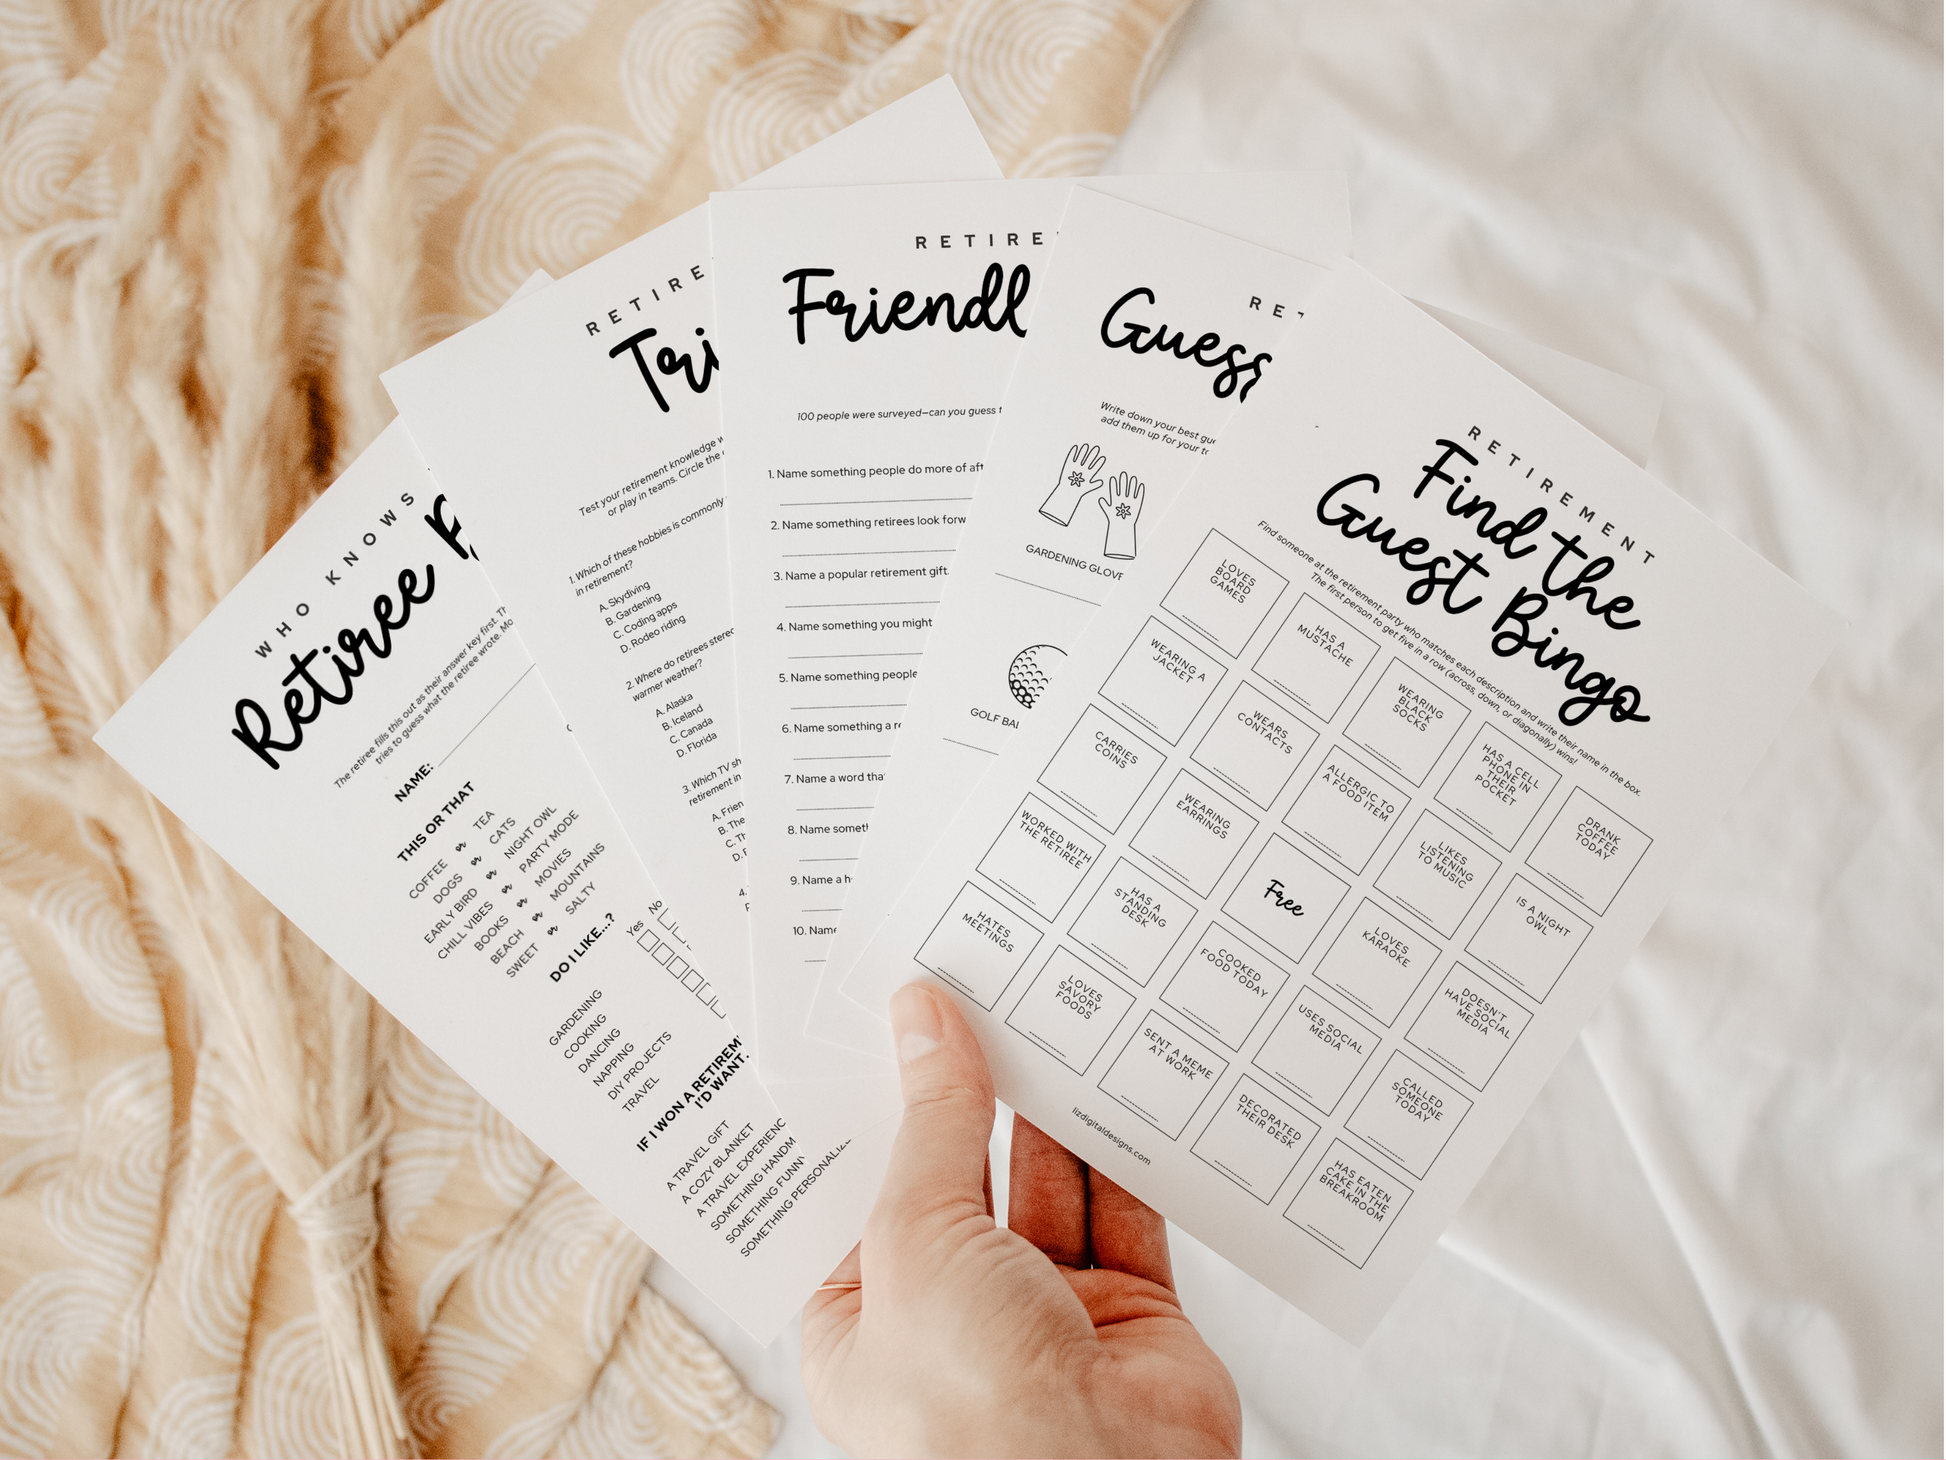 WHO KNOWS
Retiree
The retiree fills this out as their answer key first.
tries to guess what the retiree wrote.
NAME:
THIS OR THAT
COFFEE or TEA
DOGS or CATS
EARLY BIRD or NIGHT OWL
CHILL VIBES or PARTY MODE
BOOKS or MOVIES
BEACH or MOUNTAINS
SWEET or SALTY
DO I LIKE...?
Yes No
GARDENING
COOKING
DANCING
NAPPING
DIY PROJECTS
TRAVEL
IF I WON A RETIREM
I'D WANT
A TRAVEL GIFT
A COZY BLANKET
A TRAVEL EXPERIENC
SOMETHING HANDM
SOMETHING FUNN
SOMETHING PERSONALIZ
RETIRE
Tri
Test your retirement knowledge
or play in teams. Circle the
1. Which of these hobbies is commonly
in retirement?
A. Skydiving
B. Gardening
C. Coding apps
D. Rodeo riding
2. Where do retirees stereo
warmer weather?
A. Alaska
B. Iceland
C. Canada
D. Florida
3. Which TV sh
retirement in
A. Frien
B. The
C. Th
D.
4.
RETIRE
Friendl
100 people were surveyed—can you guess
1. Name something people do more of aft
2. Name something retirees look forw
3. Name a popular retirement gift.
4. Name something you might
5. Name something people
6. Name something a re
7. Name a word tha
8. Name somet
9. Name a h
10. Name
RET
Guess
Write down your best gue
add them up for your to
GARDENING GLOVE
GOLF BAL
RETIREMENT
Find the
Guest Bingo
Find someone at the retirement party who matches each description and write their name in the box.
The first person to get five in a row (across, down, or diagonally) wins!
LOVES
BOARD
GAMES
HAS A
MUSTACHE
WEARING
BLACK
SOCKS
HAS A CELL
PHONE IN
THEIR
POCKET
DRANK
COFFEE
TODAY
WEARING A
JACKET
WEARS
CONTACTS
ALLERGIC TO
A FOOD ITEM
LIKES
LISTENING
TO MUSIC
IS A NIGHT
OWL
CARRIES
COINS
WEARING
EARRINGS
Free
LOVES
KARAOKE
DOESN'T
HAVE SOCIAL
MEDIA
WORKED WITH
THE RETIREE
HAS A
STANDING
DESK
COOKED
FOOD TODAY
USES SOCIAL
MEDIA
CALLED
SOMEONE
TODAY
HATES
MEETINGS
LOVES
SAVORY
FOODS
SENT A MEME
AT WORK
DECORATED
THEIR DESK
HAS EATEN
CAKE IN THE
BREAKROOM
lizdigitaldesigns.com